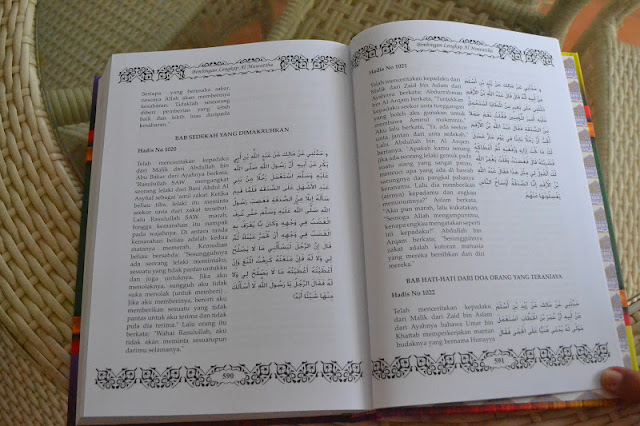 Bimbingan Lengkap Al Muwattha
Siapa yang berusaha sabar,
semoga Allah akan memberinya
kesabaran. Tidaklah seseorang
diberi pemberian yang lebih
baik dan lebih luas daripada
kesabaran."
BAB SEDEKAH YANG DIMAKRUHKAN
Hadis No 1020
Telah menceritakan kepadaku
dari Malik dari Abdullah bin
Abu Bakar dari Ayahnya berkata;
"Rasulullah SAW mengangkat
seorang lelaki dari Bani Abdul Al
Asyhal sebagai wakil zakat. Ketika
beliau tiba, lelaki itu meminta
seekor unta dari zakat tersebut.
Lalu Rasulullah SAW marah,
hingga kemarahan itu nampak
pada wajahnya. Di antara tanda
kemarahan beliau adalah kedua
matanya memerah. Kemudian
beliau bersabda: "Sesungguhnya
ada seorang lelaki meminta
sesuatu yang tidak pantas untukku
dan juga untuknya. Jika aku
menolaknya, sungguh aku tidak
suka menolak (untuk memberi)
Jika aku memberinya, berarti aku
memberikan sesuatu yang tidak
pantas untuk aku terima dan tidak
pula dia terima." Lalu orang itu
berkata; "Wahai Rasulullah, aku
tidak akan meminta sesuatupun
darimu selamanya."
و حَدَّثَنِي عَنْ مَالِك عَنْ عَبْدِ اللَّهِ بْنِ أَبِي
بَكْرٍ عَنْ أَبِيهِ أَنَّ رَسُولَ اللَّهِ صَلَّى اللَّهُ
عَلَيْهِ وَسَلَّمَ اسْتَعْمَلَ رَجُلًا مِنْ بَنِي
عَبْدِ الْأَشْهَلِ عَلَى الصَّدَقَةِ فَلَمَّا قَدِمَ
سَأَلَهُ إِبِلًا مِنْ الصَّدَقَةِ فَغَضِبَ رَسُولُ
اللَّهِ صَلَّى اللَّهُ عَلَيْهِ وَسَلَّمَ حَتَّى عُرِفَ
الْغَضَبُ فِي وَجْهِهِ وَكَانَ مِمَّا يُعْرَفُ بِهِ
الْغَضَبُ فِي وَجْهِهِ أَنْ تَحْمَرَّ عَيْنَاهُ ثُمَّ
قَالَ إِنَّ الرَّجُلَ لَيَسْأَلُنِي مَا لَا يَصْلُحُ
لِي وَلَا لَهُ فَإِنْ مَنَعْتُهُ كَرِهْتُ الْمَنْعَ وَإِنْ
أَعْطَيْتُهُ أَعْطَيْتُهُ مَا لَا يَصْلُحُ لِي وَلَا
لَهُ فَقَالَ الرَّجُلُ يَا رَسُولَ اللَّهِ لَا أَسْأَلُكَ
مِنْهَا شَيْئًا أَبَدًا
590
Bimbingan Lengkap Al Muwattha
Hadis No 1021
Telah menceritakan kepadaku
dari Malik dari Zaid bin Aslam dari
Ayahnya berkata; Abdurrahman
bin Al Arqam berkata; "Tunjukkan
kepadaku seekor unta tunggangan
yang boleh aku gunakan untuk
membawa Amirul mukminin."
Aku lalu berkata; "Ya, ada seekor
unta jantan dari unta sedekah."
Lalu Abdullah bin Al Arqam
berkata; "Apakah kamu senang
jika ada seorang lelaki gemuk pada
suatu siang yang sangat panas,
mencuci apa yang ada di bawah
sarungnya dan pangkal pahanya
karenamu. Lalu dia memberikan
(airnya) kepadamu dan engkau
meminumnya?" Aslam berkata,
"Aku pun marah, lalu kukatakan,
"Semoga Allah mengampunimu,
kenapa engkau mengatakan seperti
ini kepadaku?" Abdullah bin
Arqam berkata; "Sesungguhnya
zakat adalah kotoran manusia
yang mereka bersihkan dari diri
mereka."
BAB HATI-HATI DARI DOA ORANG YANG TERANIAYA
Hadis No 1022
Telah menceritakan kepadaku
dari Malik dari Zaid bin Aslam
dari Ayahnya bahwa Umar bin
Khattab mempekerjakan mantan
budaknya yang bernama Hunayya
حَدَّثَنِي عَنْ مَالِك عَنْ زَيْدِ بْنِ أَسْلَمَ
عَنْ أَبِيهِ أَنَّ عُمَرَ بْنَ الْخَطَّابِ اسْتَعْمَلَ
مَوْلًى لَهُ يُدْعَى هُنَيًّا عَلَى الْحِمَى فَقَالَ
591